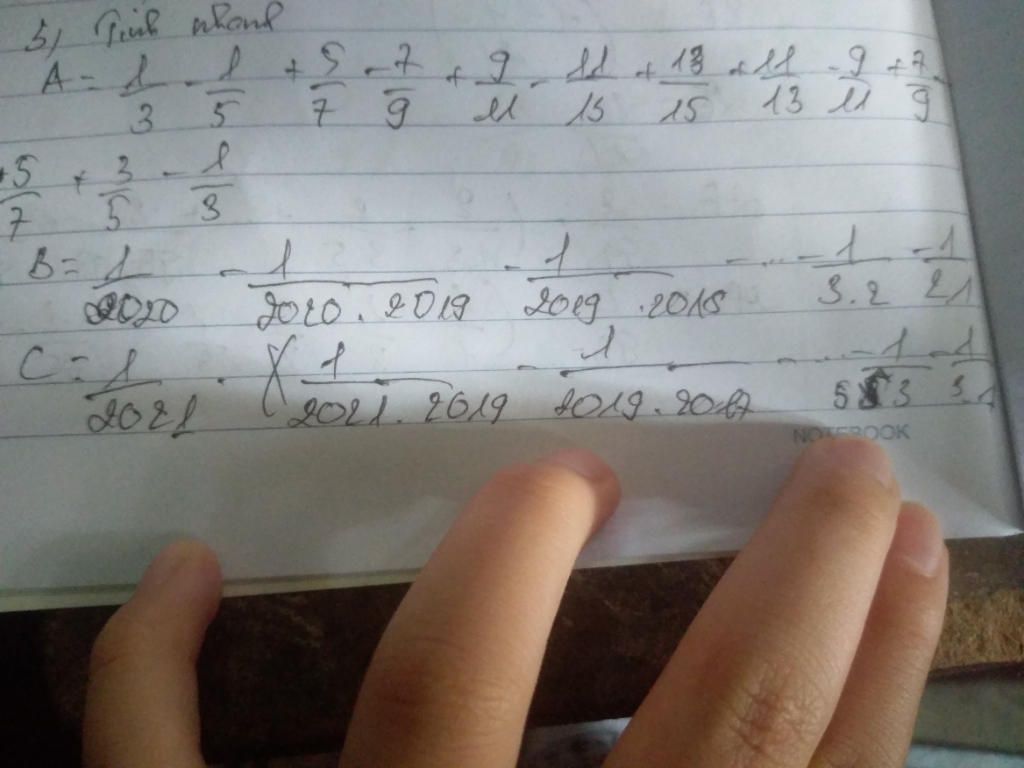 3, Tính nhanh
A = 1/3 - 1/5 + 5/7 - 7/9 + 9/11 - 11/13 + 13/15 + 11/13 - 9/11 + 7/9 -
5/7 + 3/5 - 1/3
B = 1/2020 - 1/2020.2019 - 1/2019.2018 - ... - 1/3.2 - 1/2.1
C = 1/2021 . 1/2021.2019 - 1/2019.2017 - ... - 1/5.3 - 1/3.1
NOTEBOOK